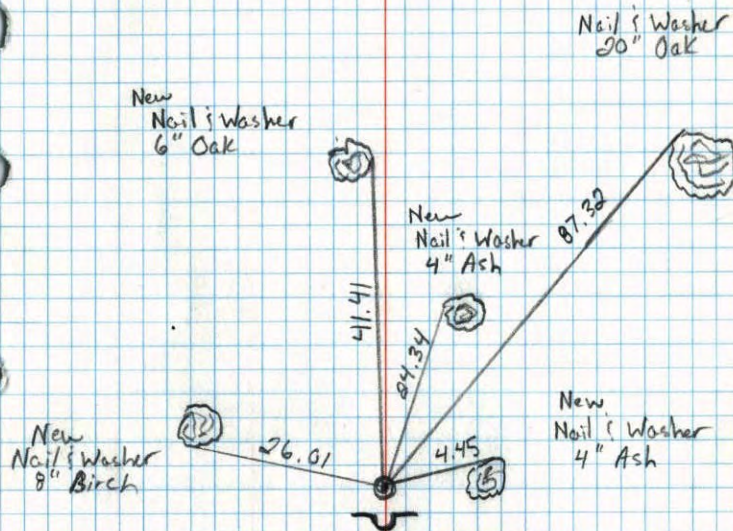 Nail & Washer
20" Oak
New
Nail & Washer
6" Oak
New
Nail & Washer
4" Ash
87.32
41.41
24.34
New
Nail & Washer
4" Ash
New
Nail & Washer
8" Birch
26.01
4.45